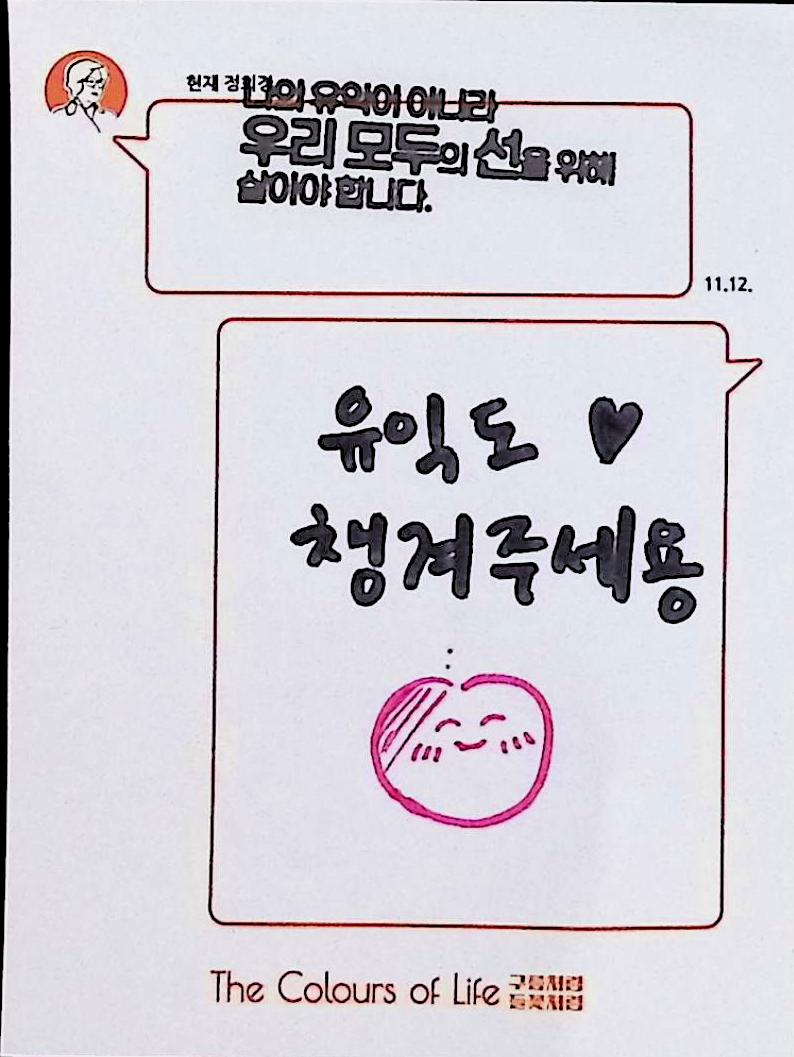 현재 정희경
나의 유익이 아니라
우리 모두의 선을 위해
살아야 합니다.
11.12.
유익도 ♥
챙겨주세용
The Colours of Life 구름처럼
들꽃처럼